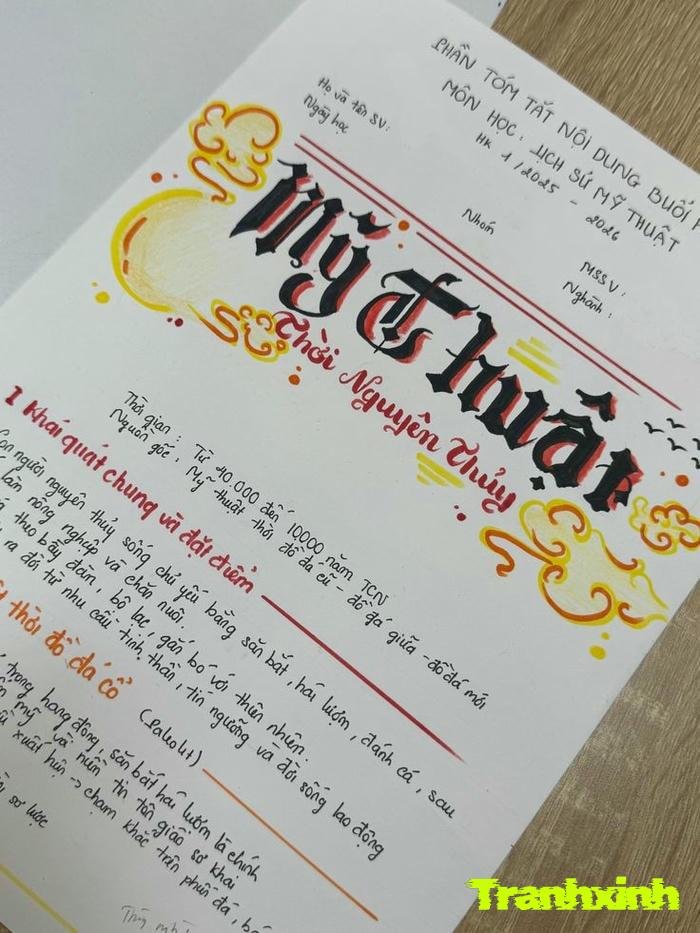 PHẦN TÓM TẮT NỘI DUNG BUỔI
MÔN HỌC: LỊCH SỬ MỸ THUẬT
HK 1/2025 - 2026
Họ và tên SV:
Ngày học
Nhóm
MSSV:
Nghành:
Mỹ Thuật
Thời Nguyên Thủy
Thời gian: Từ 40.000 đến 10000 năm TCN
Nguồn gốc: Mỹ thuật thời đồ đá cũ - đồ đá giữa - đồ đá mới
I Khái quát chung và đặt điểm
con người nguyên thủy sống chủ yếu bằng săn bắt, hái lượm, đánh cá, sau
làn nông nghiệp và chăn nuôi.
theo bầy đàn, bộ lạc, gắn bó với thiên nhiên.
ra đời từ nhu cầu tinh thần, tín ngưỡng và đời sống lao động
thời đồ đá cổ (Paleolit)
trong hang động, săn bắt hái lượm là chính
mỹ và niềm tin tôn giáo sơ khai
xuất hiện → chạm khắc trên phiến đá,
sơ lược
Tranhxinh